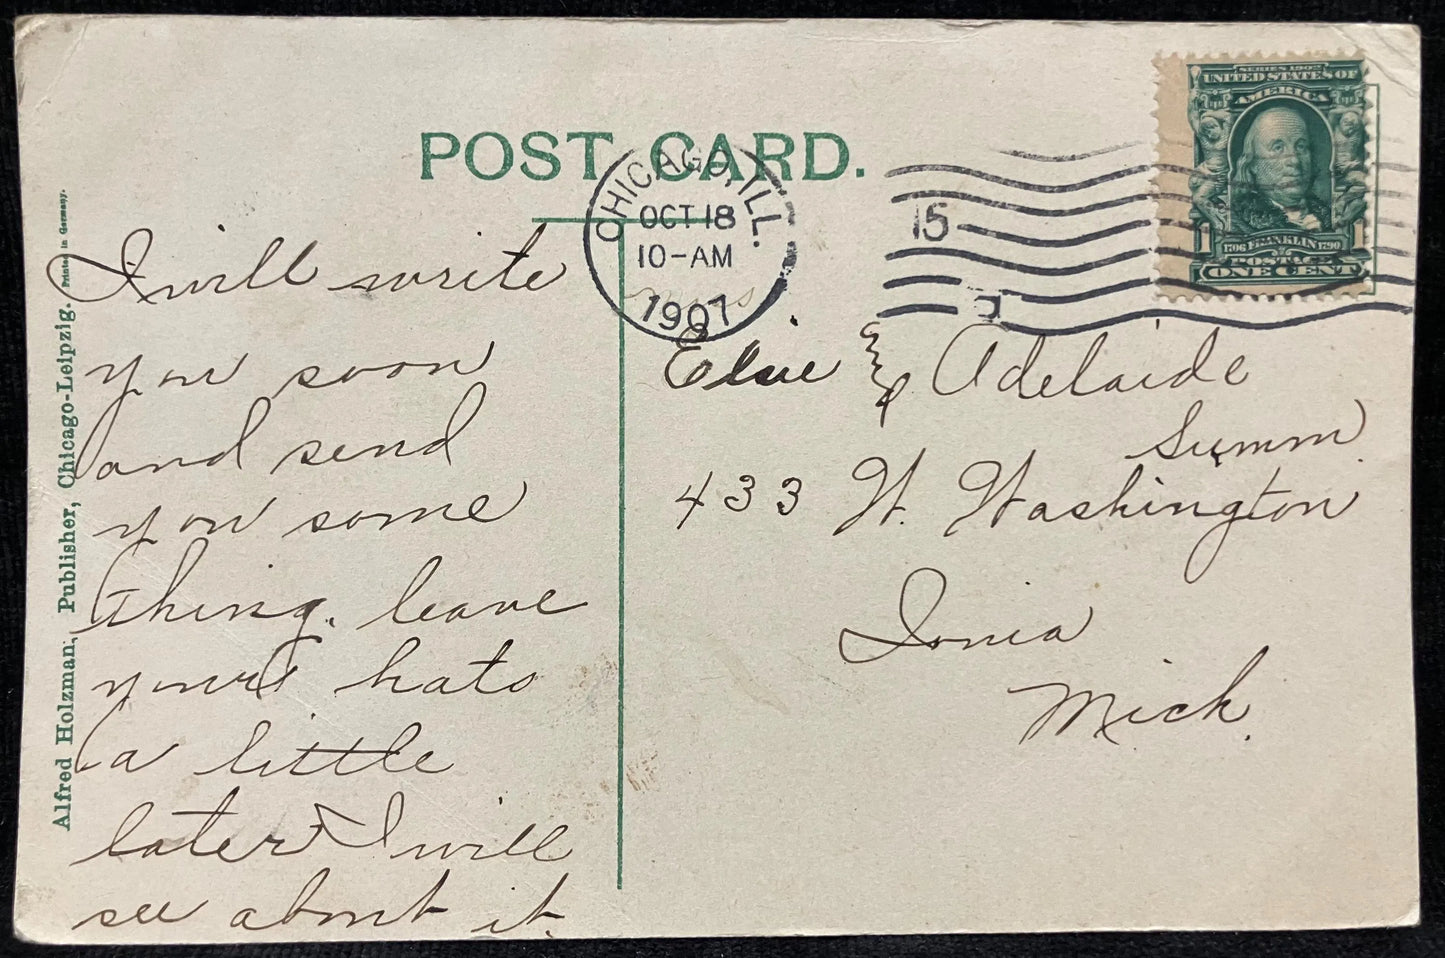 POST CARD.
CHICAGO, ILL.
OCT 18
10-AM
1907
15
SERIES 1902
UNITED STATES OF
AMERICA
1706 FRANKLIN 1790
1 1
POSTAGE
ONE CENT
Alfred Holzman, Publisher, Chicago-Leipzig. Printed in Germany.
I will write
you soon
and send
you some
thing. leave
your hats
a little
later I will
see about it.
Elsie & Adelaide
Summ
433 W. Washington
Ionia
Mich.